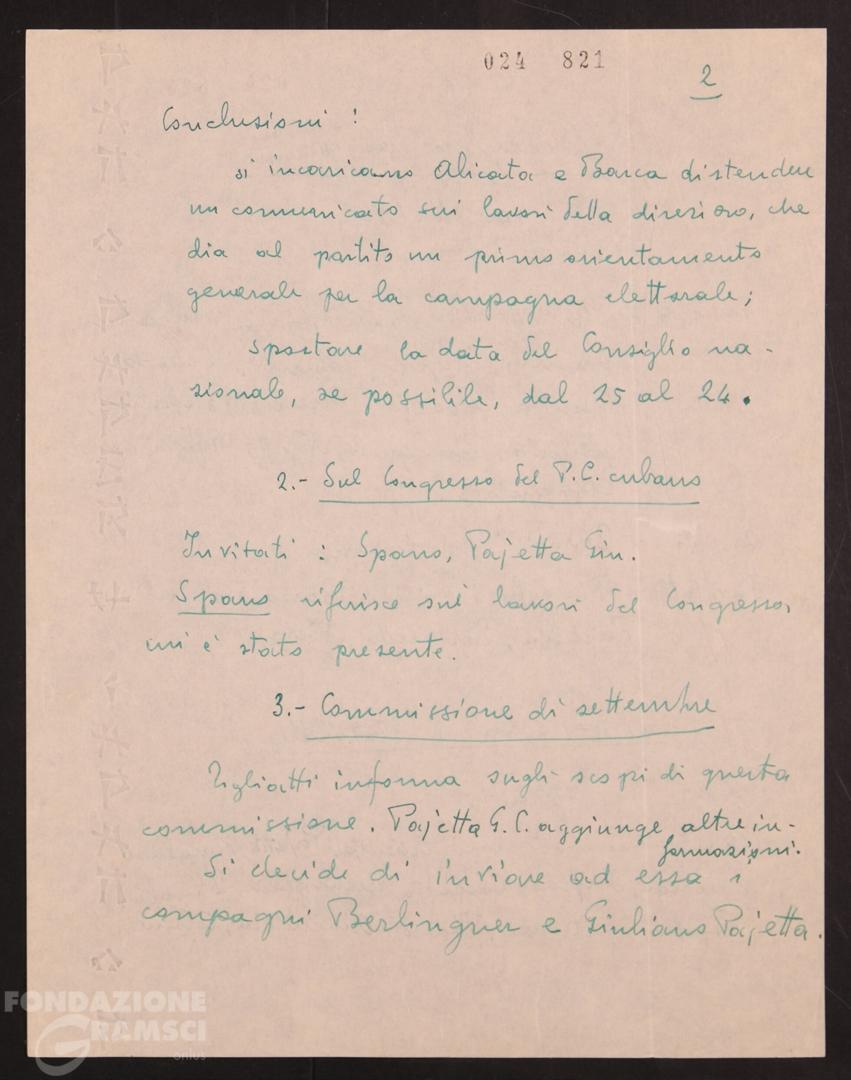 024 821
2
Conclusioni :
si incaricano Alicata e Barca di stendere
un comunicato sui lavori della direzione, che
dia al partito un primo orientamento
generale per la campagna elettorale;
spostare la data del Consiglio na-
zionale, se possibile, dal 25 al 24.
2.- Sul Congresso del P.C. cubano
Invitati : Spano, Pajetta Giu.
Spano riferisce sui lavori del Congresso,
cui è stato presente.
3.- Commissione di settembre
Togliatti informa sugli scopi di questa
commissione. Pajetta G.C. aggiunge altre in-
formazioni.
Si decide di inviare ad essa i
compagni Berlinguer e Giuliano Pajetta.
FONDAZIONE
GRAMSCI
onlus